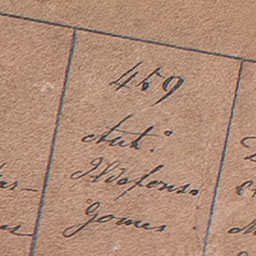 459
Ant.°
Ildefonso
Gomes